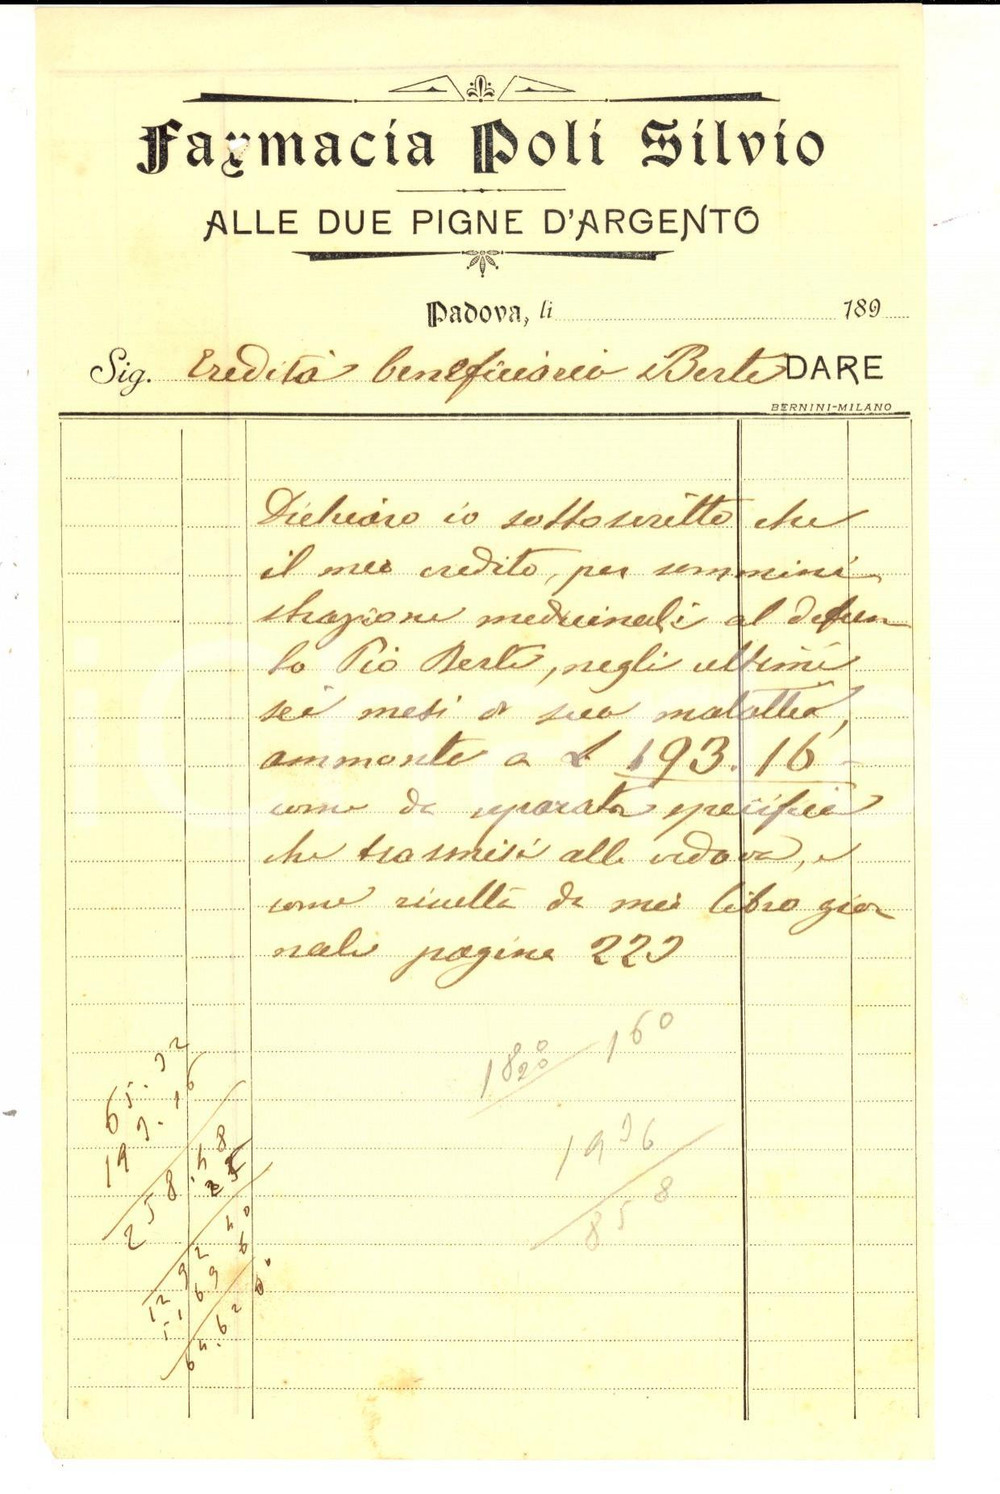 Farmacia Poli Silvio
ALLE DUE PIGNE D'ARGENTO
Padova, li 189
Sig. Eredità beneficiaria Berti DARE
BERNINI-MILANO
Dichiaro io sottoscritto che
il mio credito, per sommini
strazione medicinali al defun
to Pio Berti, negli ultimi
sei mesi di sua malattia,
ammonta a £ 193.16
come da separata specifica
che trasmisi alla vedova, e
come risulta da mio libro gior
nale pagina 223
65.32
193.16
258.48
25
1292 40
5169 6
64.62 00
1820 160
1936
858